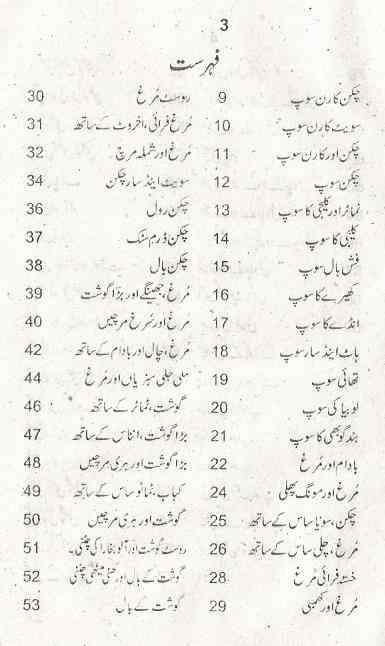 3
فہرست
چکن کارن سوپ 9
سویٹ کارن سوپ 10
چکن اور کارن سوپ 11
چکن سوپ 12
ٹماٹر اور کلیجی کا سوپ 13
کلیجی کا سوپ 14
فش بال سوپ 15
کھیرے کا سوپ 16
انڈے کا سوپ 17
ہاٹ اینڈ سار سوپ 18
تھائی سوپ 19
لوبیا کی سوپ 20
بند گوبھی کا سوپ 21
بادام اور مُرغ 22
مُرغ اور مونگ پھلی 24
چکن، سویا ساس کے ساتھ 25
مُرغ، چلی ساس کے ساتھ 26
خستہ فرائی مُرغ 28
مُرغ اور کھمبی 29
روسٹ مُرغ 30
مُرغ فرائی، اخروٹ کے ساتھ 31
مُرغ اور شملہ مرچ 32
سویٹ اینڈ سار چکن 34
چکن رول 36
چکن ڈرم سٹک 37
چکن بال 38
مُرغ، جھینگے اور بڑا گوشت 39
مُرغ اور سُرخ مرچیں 40
مُرغ، چاول اور بادام کے ساتھ 42
ملی جلی سبزیاں اور مُرغ 44
گوشت، ٹماٹر کے ساتھ 46
بڑا گوشت، انناس کے ساتھ 47
بڑا گوشت اور ہری مرچیں 48
کباب، ٹماٹو ساس کے ساتھ 49
گوشت اور ہری مرچیں 50
روسٹ گوشت اور آلو بخارا کی چٹنی۔ 51
گوشت کے بال اور کھٹی میٹھی چٹنی 52
گوشت کے بال 53